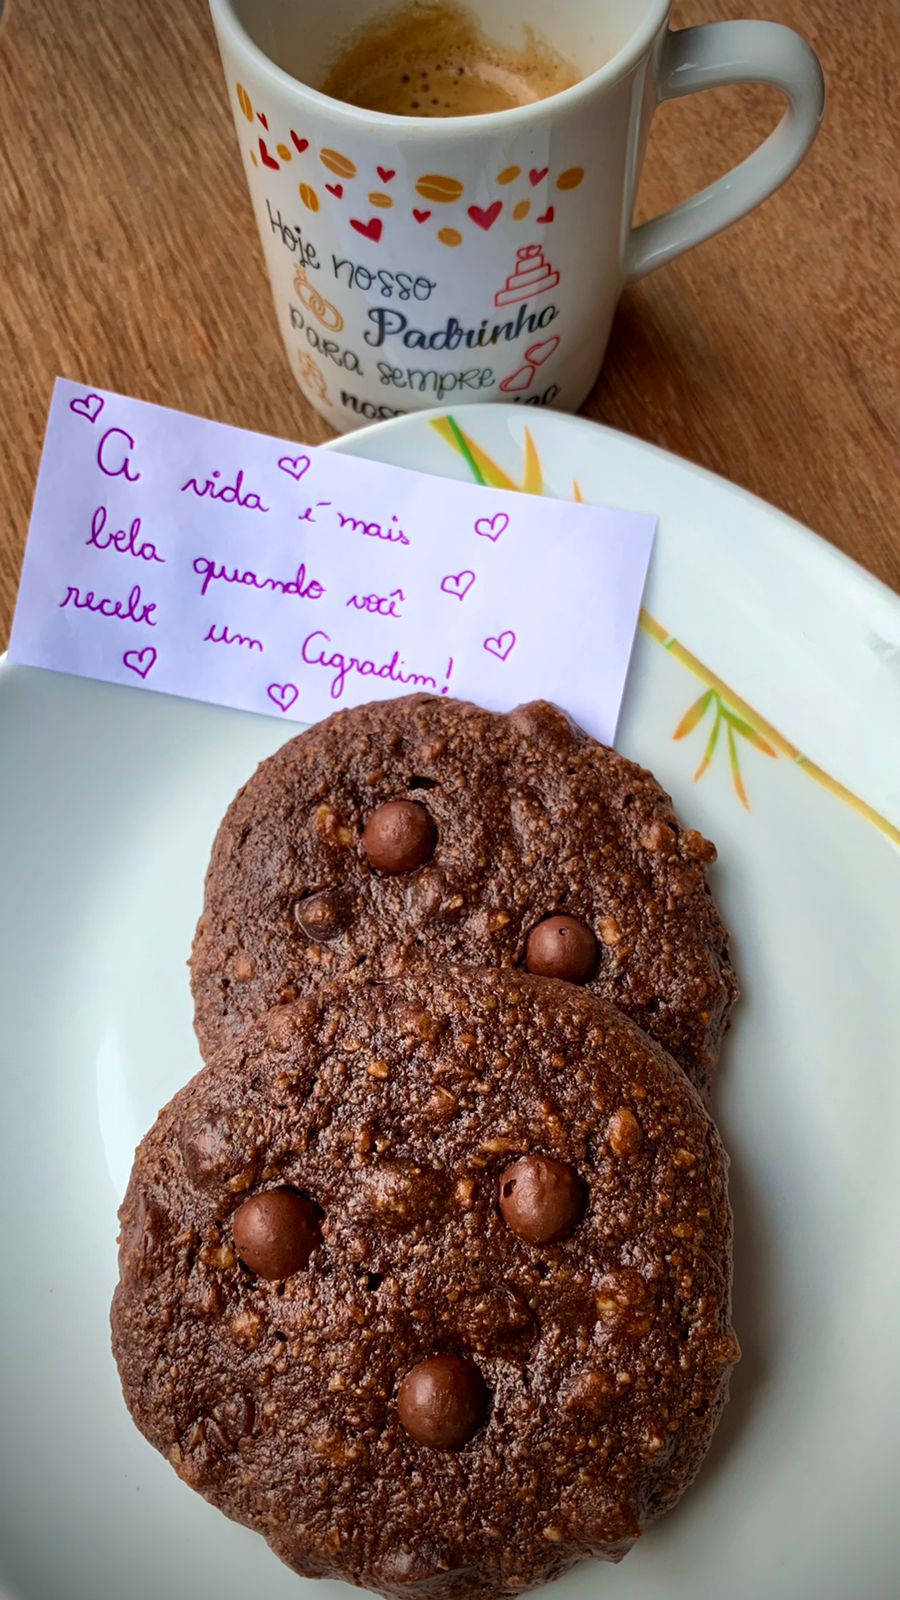 Hoje nosso
Padrinho
para sempre
A vida é mais
bela quando você
recebe um Agradim!